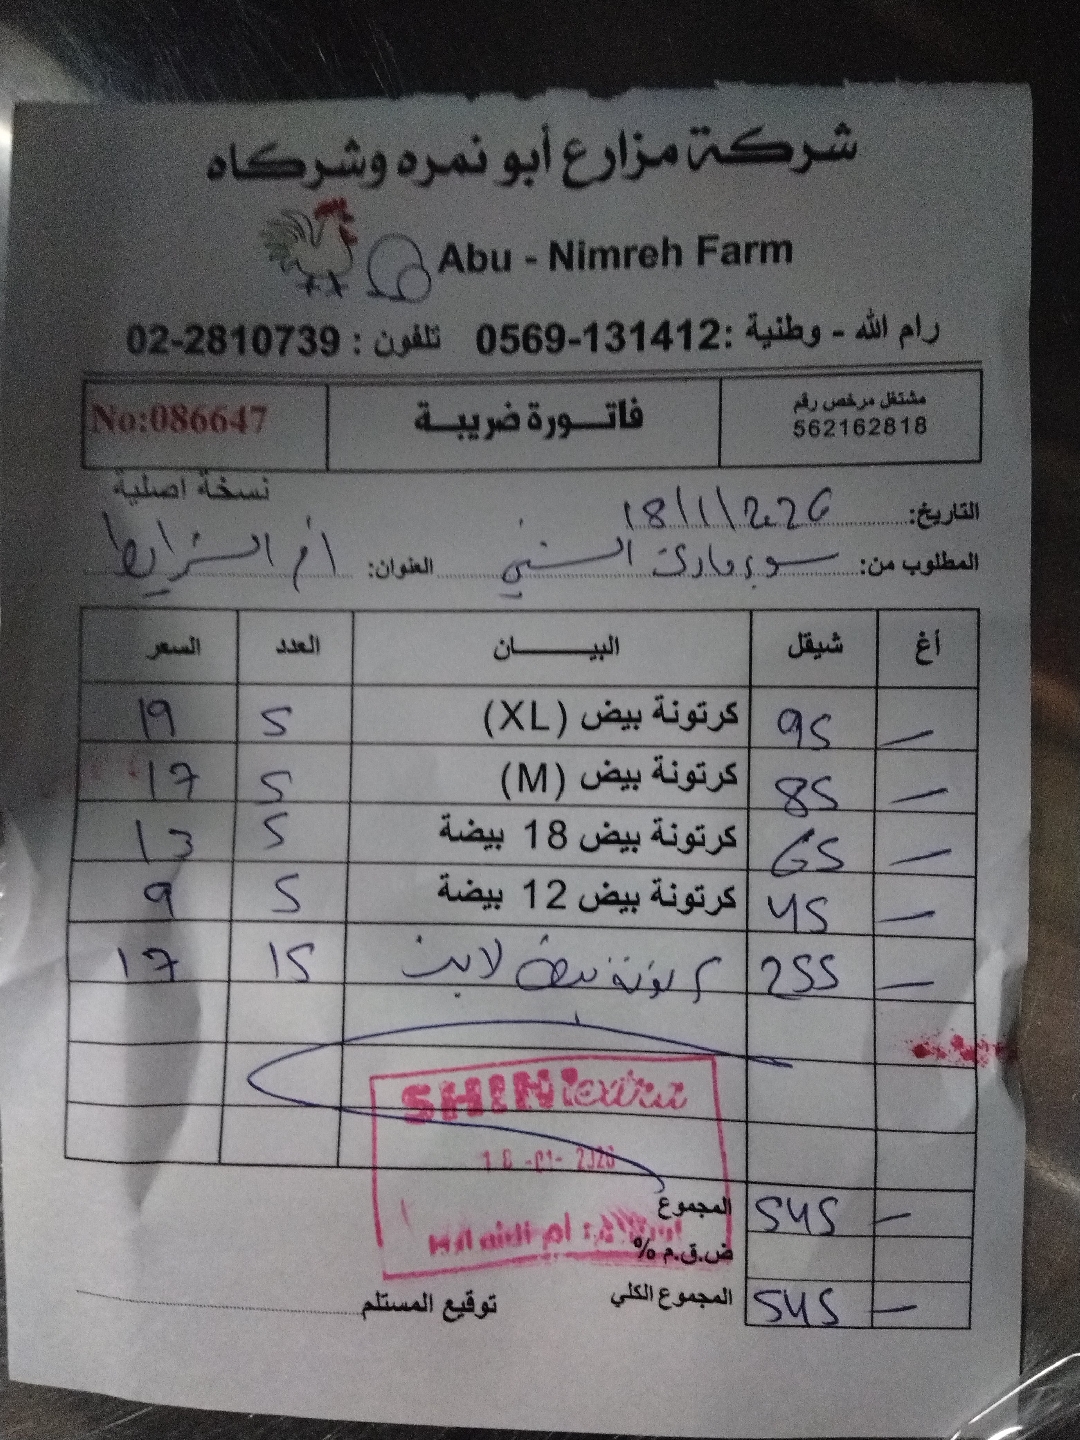 شركة مزارع أبو نمره وشركاه
Abu - Nimreh Farm
رام الله - وطنية :0569-131412 تلفون : 02-2810739
مشتغل مرخص رقم
562162818
فاتـــورة ضريبـة
No:086647
نسخة اصلية
التاريخ: 18/1/2026
المطلوب من: سوبرماركت السني العنوان: أم الشرايط
أغ شيقل البيـــــان العدد السعر
— 95 كرتونة بيض (XL) 5 19
— 85 كرتونة بيض (M) 5 17
— 65 كرتونة بيض 18 بيضة 5 13
— 45 كرتونة بيض 12 بيضة 5 9
— 255 كرتونة بيض لايت 15 17
SHINI extra
18 -01- 2026
المجموع 545 —
ض.ق.م %
المجموع الكلي 545 —
توقيع المستلم